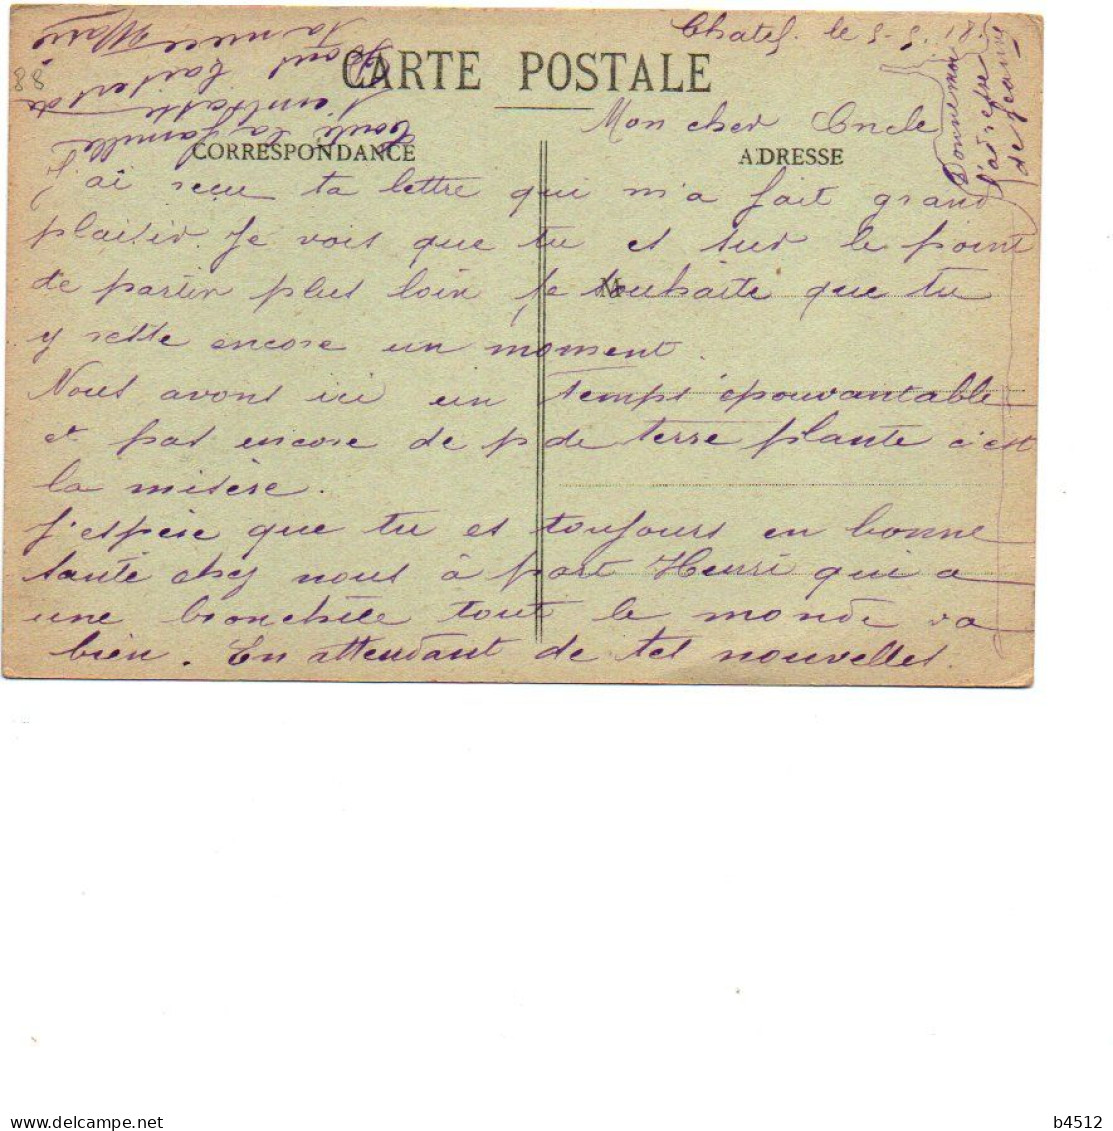 Chatel. le 5-5. 18.
CARTE POSTALE
88
Mon cher Oncle
CORRESPONDANCE
ADRESSE
J'ai reçu ta lettre qui m'a fait grand
plaisir. Je vois que tu es sur le point
de partir plus loin je souhaite que tu
y reste encore un moment.
Nous avons ici un temps épouvantable
et pas encore de p de terre plante c'est
la misère.
J'espère que tu es toujours en bonne
santé chez nous à part Henri qui a
une bronchite tout le monde va
bien. En attendant de tes nouvelles.
toute la famille
t'embrasse
bons baisers de
ta nièce Marie
Donne moi
l'adresse
de Jeanny
www.delcampe.net
b4512